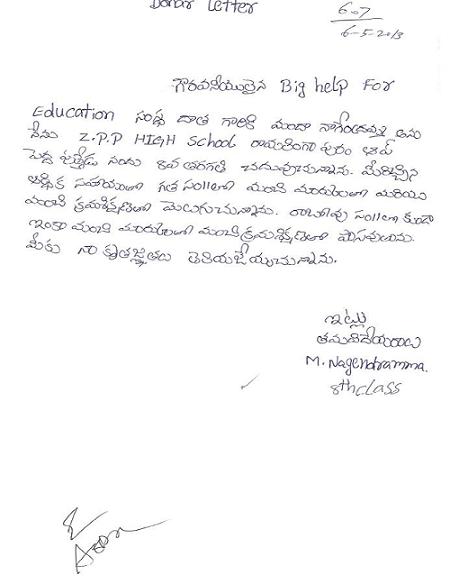 Donar Letter
607
6-5-2013
గౌరవనీయులైన Big help For
Education సంస్థ దాత గారికి మందా నాగేంద్రమ్మ అను
నేను Z.P.P HIGH School
పెద్ద నందు 8వ తరగతి చదువుచున్నాను. మీరిచ్చిన
ఆర్థిక సహాయంతో గత సంllలో మంచి మార్కులతో మరియు
మంచి క్రమశిక్షణతో మెలుగుచున్నాను. రాబోవు సంllలో కూడా
ఇంకా మంచి మార్కులతో మంచి క్రమశిక్షణతో పాసవుతాను.
మీకు నా కృతజ్ఞతలు తెలియజేయుచున్నాను.
ఇట్లు
తమ విదేయురాలు
M. Nagendramma.
8th CLASS